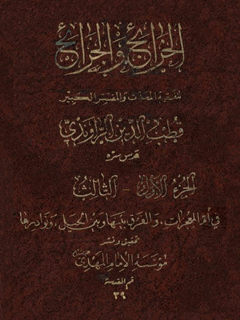 الخرائج والجرائح
للفقيه المحدث والمفسر الكبير
قطب الدين الراوندي
قدس سره
الجزء الأول - الثالث
في أم المعجزات، والفرق بينها وبين الحيل، ونوادرها
تحقيق ونشر
مؤسسة الإمام المهدي
قم المقدسة
٣٩